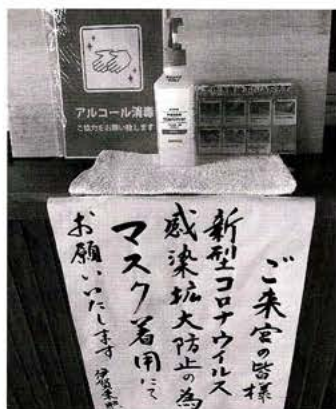 アルコール消毒
ご協力をお願い致します
ご来宮の皆様
新型コロナウイルス
感染拡大防止の為
マスク着用にて
お願いいたします